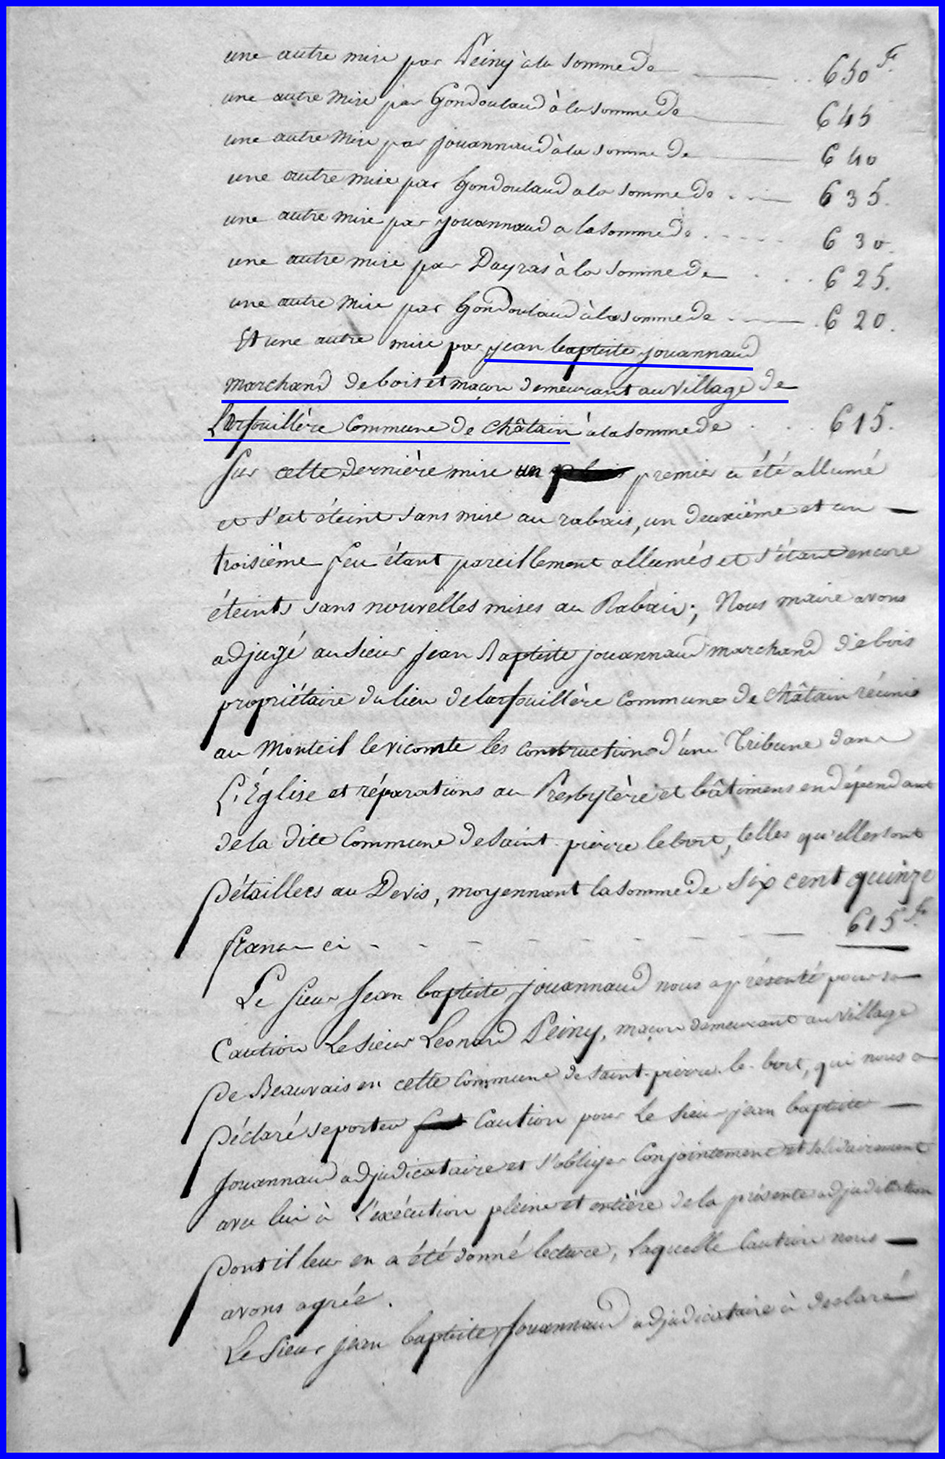 une autre mise par Peiny à la somme de 650 F.
une autre mise par Gondoulaud à la somme de 645
une autre mise par jouannaud à la somme de 640
une autre mise par Gondoulaud a la somme de 635.
une autre mise par jouannaud a la somme de 630.
une autre mise par Dayras à la somme de 625.
une autre mise par Gondoulaud à la somme de 620.
Et une autre mise par jean baptiste jouannaud
marchand de bois et maçon demeurant au village de
Larfouillère Commune de Châtain à la somme de 615.
Sur cette dernière mise un premier a été allumé
et s'est éteint sans mise au rabais, un deuxième et un
troisième feu étant pareillement allumés et s'étant encore
éteints sans nouvelles mises au Rabais; Nous maire avons
adjugé au sieur jean Baptiste jouannaud marchand de bois
propriétaire du lieu de larfouillère commune de Châtain réunie
au Monteil le vicomte les constructions d'une Tribune dans
L'Église et réparations au Presbytère et bâtimens en dépendant
de la dite Commune de Saint pierre le bort, telles qu'elles sont
Détaillées au Devis, moyennant la somme de Six cent quinze
francs ci 615 F.
Le Sieur Jean baptiste jouannaud nous a présenté pour sa
Caution Le Sieur Leonard Peiny, maçon demeurant au village
De Beauvais en cette commune de Saint-pierre-le-bort, qui nous a
Déclaré se porter Caution pour Le Sieur jean baptiste
Jouannaud adjudicataire et s'obliger Conjointement et solidairement
avec lui à l'exécution pleine et entière de la présente adjudication
Dont il leur en a été donné lecture, Laquelle Caution nous
avons agréé.
Le Sieur jean baptiste Jouannaud adjudicataire à declaré